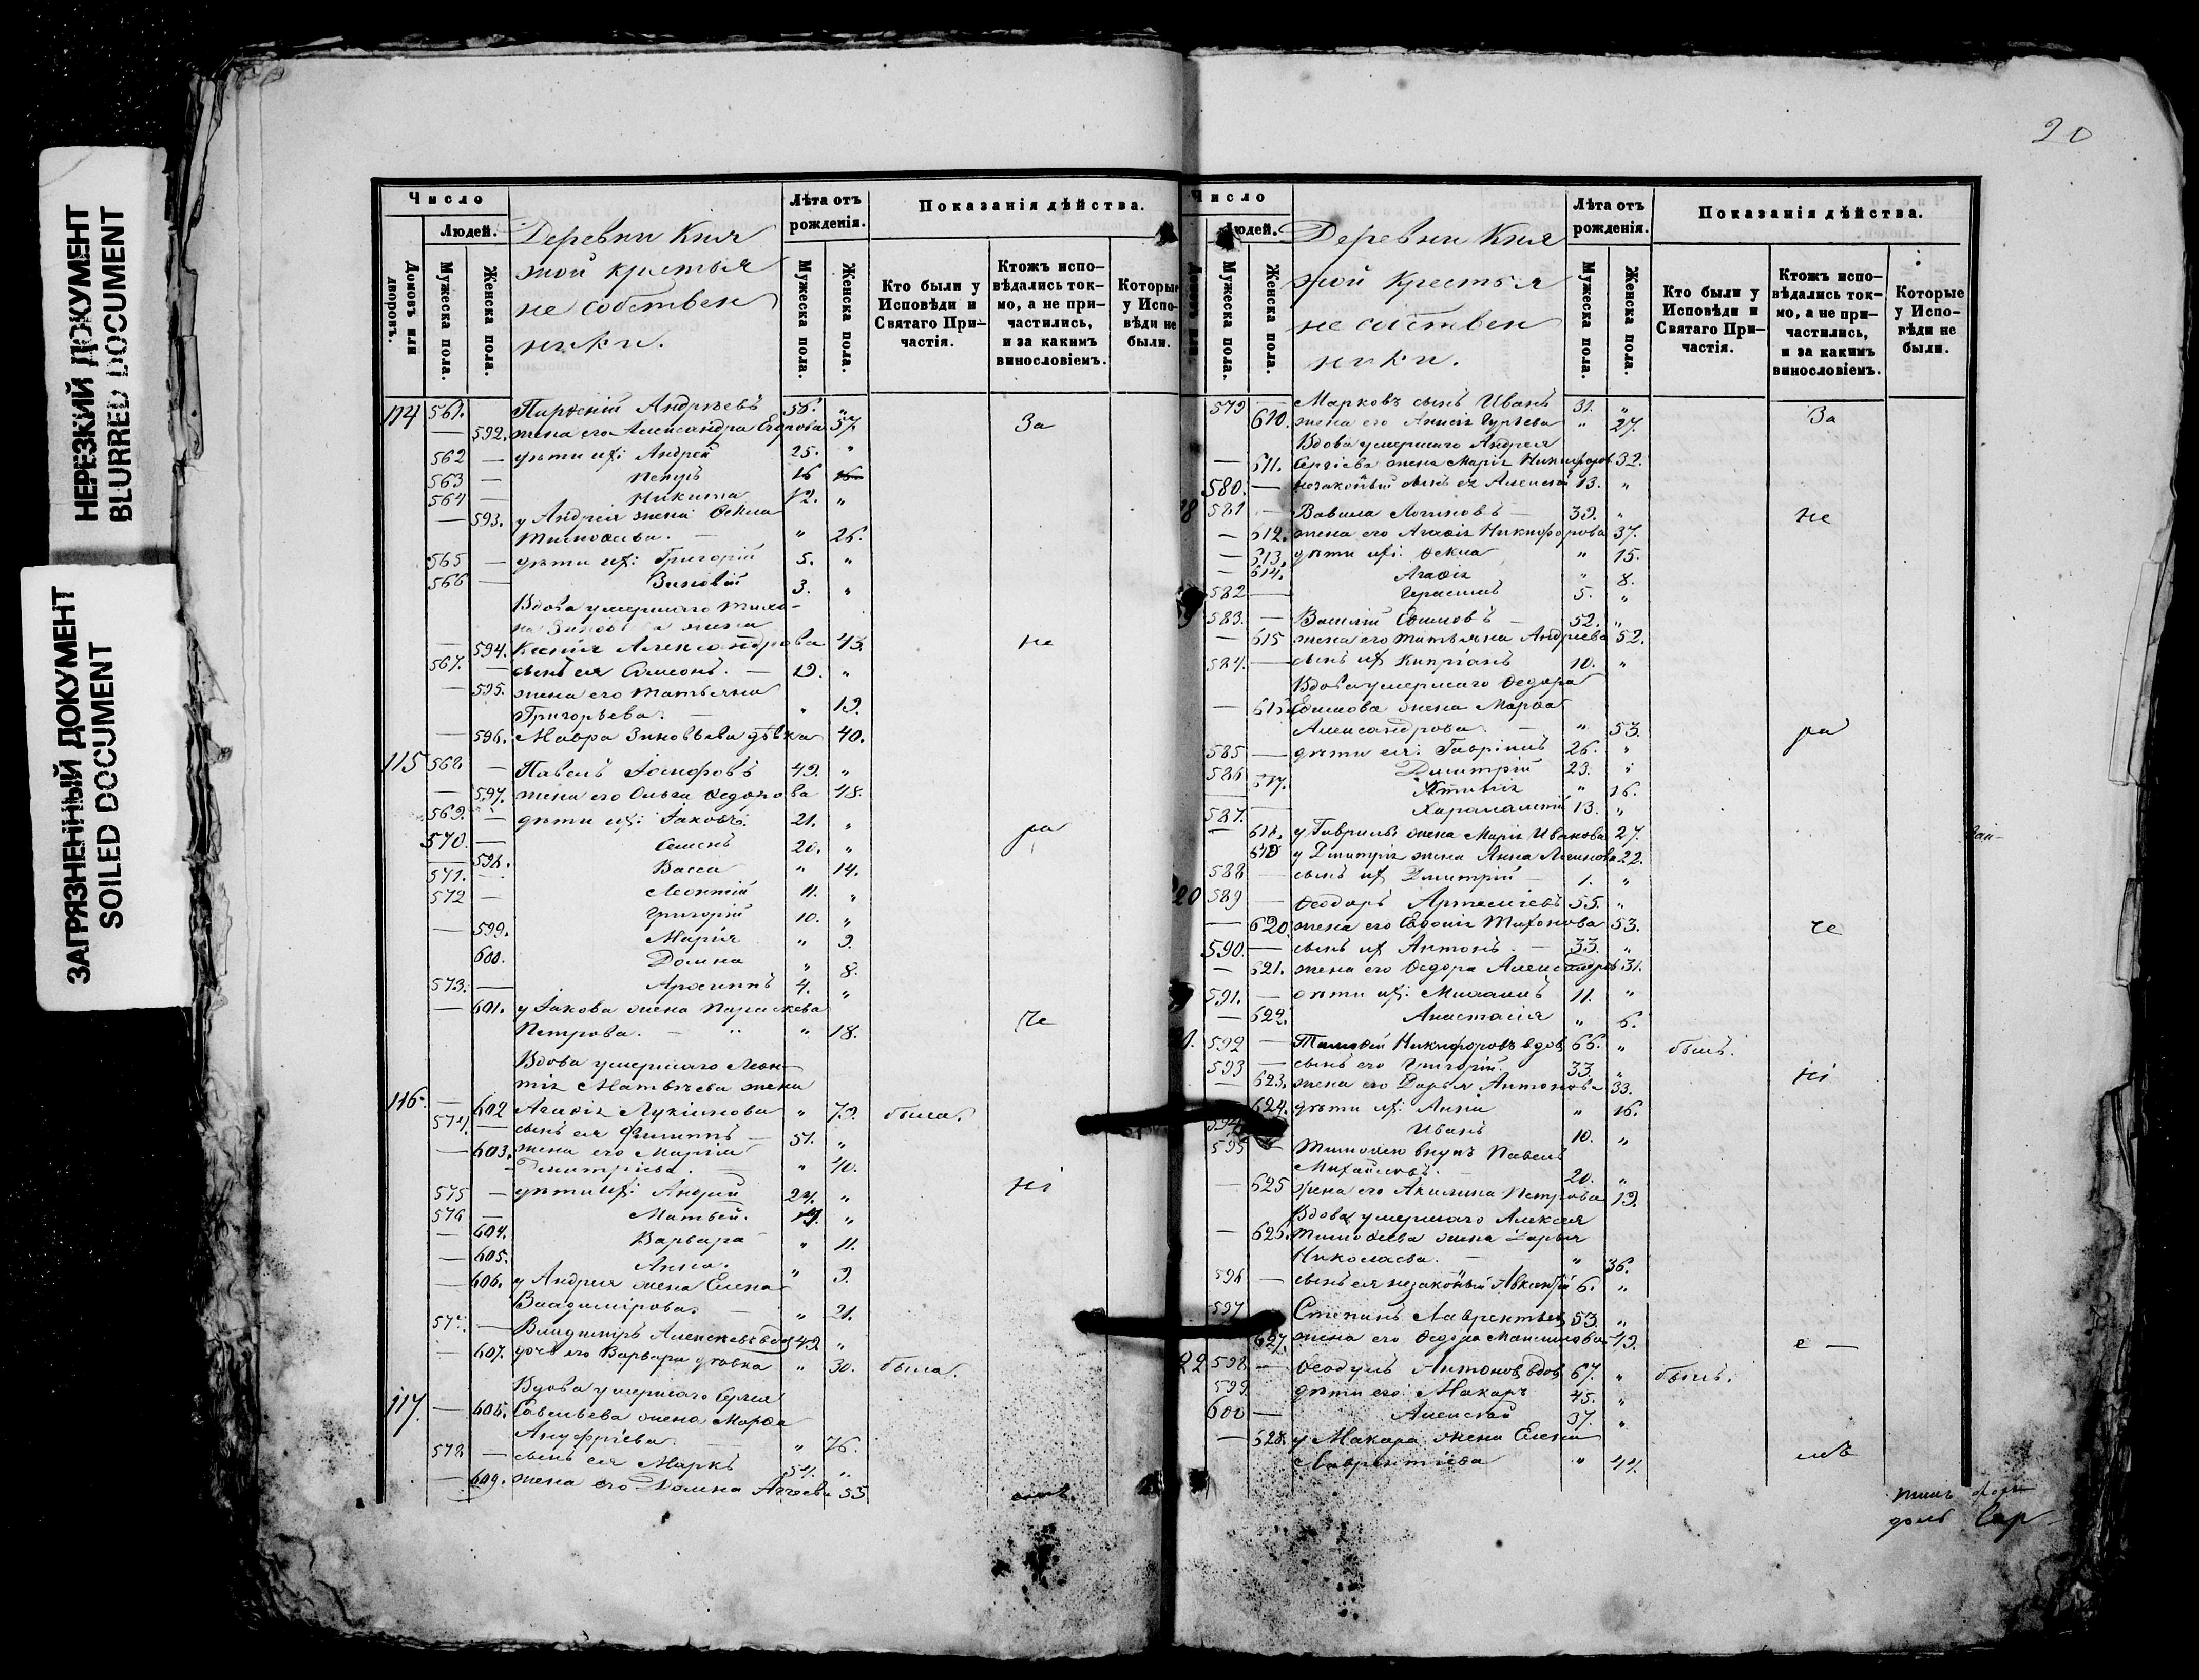 НЕРЕЗКИЙ ДОКУМЕНТ
BLURRED DOCUMENT
ЗАГРЯЗНЕННЫЙ ДОКУМЕНТ
SOILED DOCUMENT
Число
Людей.
Домовъ или дворовъ.
Мужеска пола.
Женска пола.
Деревни Кня
жой крестья
не собствен
ники.
Лѣта отъ рожденія.
Мужеска пола.
Женска пола.
Показанія дѣйства.
Кто были у Исповѣди и Святаго При-частія.
Ктожъ испо-вѣдались ток-мо, а не при-частились, и за какимъ винословіемъ.
Которые у Испо-вѣди не были.
114 561. — Андреевъ 56. "
— 592. жена его Александра Егорова 57. За
562 — дѣти их: Андрей 25. "
563 — Петръ 16
564 — Никита 12. "
— 593. у Андрея жена Фекла
Тимофеева. — " 26.
565 — дѣти их: Григорій 5. "
566 — Зиновій 3. "
Вдова умершаго Тихо-
на Зиновьева жена
— 594. Ксенія Александрова 43. не
567. — сынъ ея Симеонъ. — 19. "
— 595. жена его Татьяна
Григорьева. — " 19.
— 596. Мавра Зиновьева дѣвка 40.
115 568 — Павелъ Іосифовъ 49. "
— 597. жена его Ольга Федорова 48.
569. — дѣти их: Іаковъ. 21. "
570. — Семенъ 20. " ра
— 598. Васса " 14.
571. — Леонтій 11. "
572 — Григорій 10. "
— 599. Марія " 9.
600. Домна " 8.
573. — Архиппъ 4. "
— 601. у Іакова жена Параскева
Петрова. — " 18. че
Вдова умершаго Леон-
тія Матвѣева жена
116. — 602 Агафія Лукіянова " 79. была.
574. — сынъ ея Филиппъ — 51. "
— 603. жена его Марѳа
Димитріева. — " 40.
575 — дѣти их: Андрей 24. " ні
576 — Матвей. "
— 604. Варвара " 11.
— 605. Анна. " 9.
— 606. у Андрея жена Елена
Владимірова. — " 21.
577. — Владиміръ Алексѣевъ вдов 49 "
— 607. дочь его Варвара дѣвка " 30. была.
Вдова умершаго Сергея
117. — 608. Савельева жена Марѳа
Ануфріева. — " 76.
578 — сынъ ея Маркъ 54. "
— 609. жена его Домна Агѣева 55
20
Число
Людей.
Мужеска пола.
Женска пола.
Деревни Кня
жой крестья
не собствен
ники.
Лѣта отъ рожденія.
Мужеска пола.
Женска пола.
Показанія дѣйства.
Кто были у Исповѣди и Святаго При-частія.
Ктожъ испо-вѣдались ток-мо, а не при-частились, и за какимъ винословіемъ.
Которые у Испо-вѣди не были.
579 — Марковъ сынъ Иванъ 31. "
610. жена его Гурьева " 27. За
Вдова умершаго Андрея
— 611. Сергіева жена Марія Никифоров 32.
580. — незаконный сынъ ея Алексей 13. "
18 581 — Вавила Логиновъ — 39. " не
— 612. жена его Агафія Никифорова 37.
— 613. дѣти их: Фекла " 15.
— 614. Агафія " 8.
582 — Герасимъ 5. "
583. — Василій Ефимовъ — 52. "
— 615 жена его Татьяна Андреева 52.
584. — сынъ их Кипріанъ 10. "
Вдова умершаго Федора
— 616 Ефимова жена Марѳа
Александрова. — " 53. ра
585 — дѣти ея: Гавріилъ 26. "
586 Дмитрій 23. "
617. " 16.
587. — Харалампій 13. "
— 618. у Гавріила жена Марія Иванова 27.
619 у Димитрія жена Анна Логинова 22.
588 — сынъ их Дмитрій — 1. "
20 589 — Феодоръ Артемьевъ 55. "
— 620. жена его Евфимія Тихонова 53. че
590. — сынъ их Антонъ. — 33. "
— 621. жена его Федора Александров 31.
591. — дѣти их: Михаилъ 11. "
— 622. Анастасія " 6.
592 — Тимофей Никифоровъ вдов 66. " былъ.
593 — сынъ его Григорій. 33. " ні
— 623. жена его Дарья Антонова 33.
624. дѣти их: Анна " 16.
594 Иванъ 10. "
595 — Тимофею внукъ Павелъ
Михайловъ. — 20. "
— 625 жена его Акилина Петрова 19.
Вдова умершаго Алексея
— 626. Тимофеева жена Дарья
Николаева. — " 36.
596 — сынъ ея незаконный Авксентій 6. "
597 Степанъ Лаврентьев 53. "
627. жена его Федора Максимова 49. е —
22 598 — Феодулъ Антонов вдов 67. " былъ.
599. дѣти его: Макаръ 45. "
600 — Алексей 37. "
— 628. у Макара жена Елена
Лаврентіева " 44. мъ